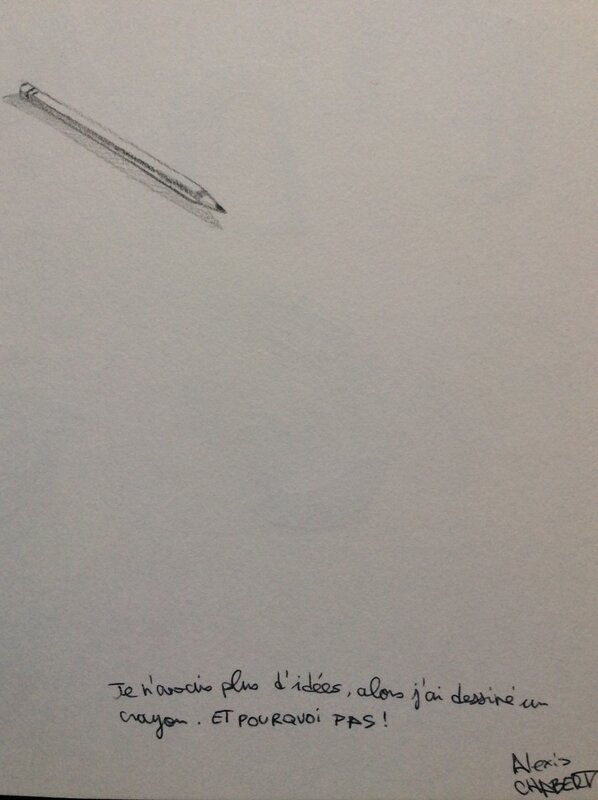 Je n'avais plus d'idées, alors j'ai dessiné un
crayon. ET POURQUOI PAS !
Alexis
CHABERT